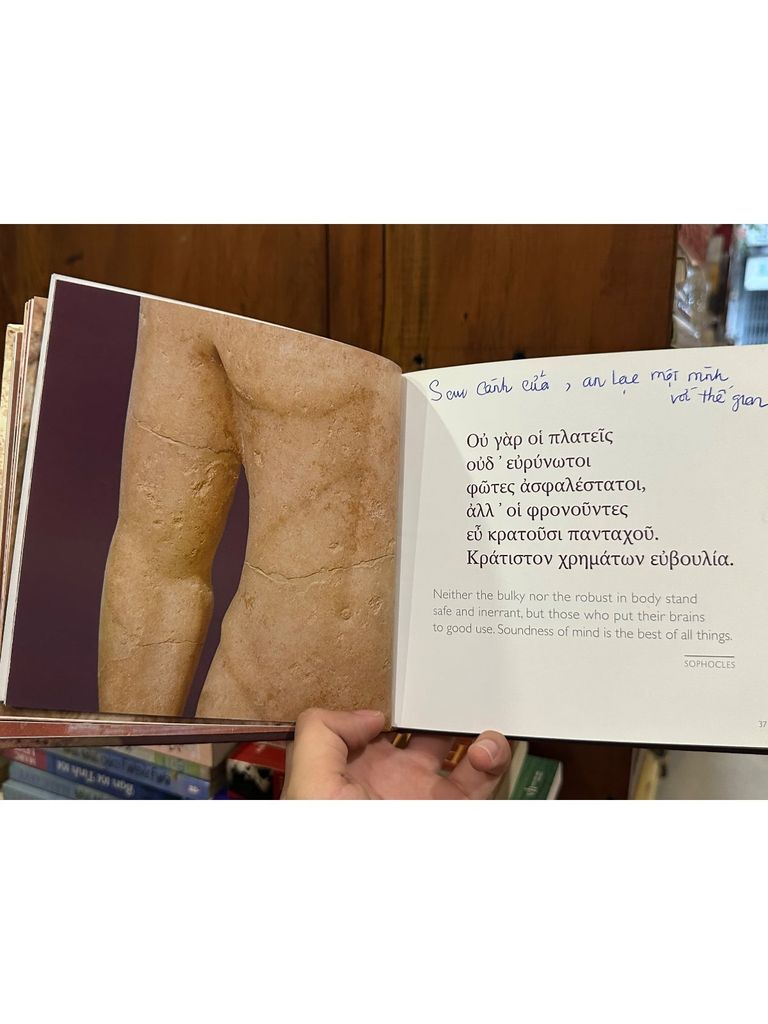 Sau cánh cửa, an lạc một mình
với thế gian
Οὐ γὰρ οἱ πλατεῖς
οὐδ ’ εὐρύνωτοι
φῶτες ἀσφαλέστατοι,
ἀλλ ’ οἱ φρονοῦντες
εὖ κρατοῦσι πανταχοῦ.
Κράτιστον χρημάτων εὐβουλία.
Neither the bulky nor the robust in body stand
safe and inerrant, but those who put their brains
to good use. Soundness of mind is the best of all things.
SOPHOCLES
37
Bạn tôi Tình tôi